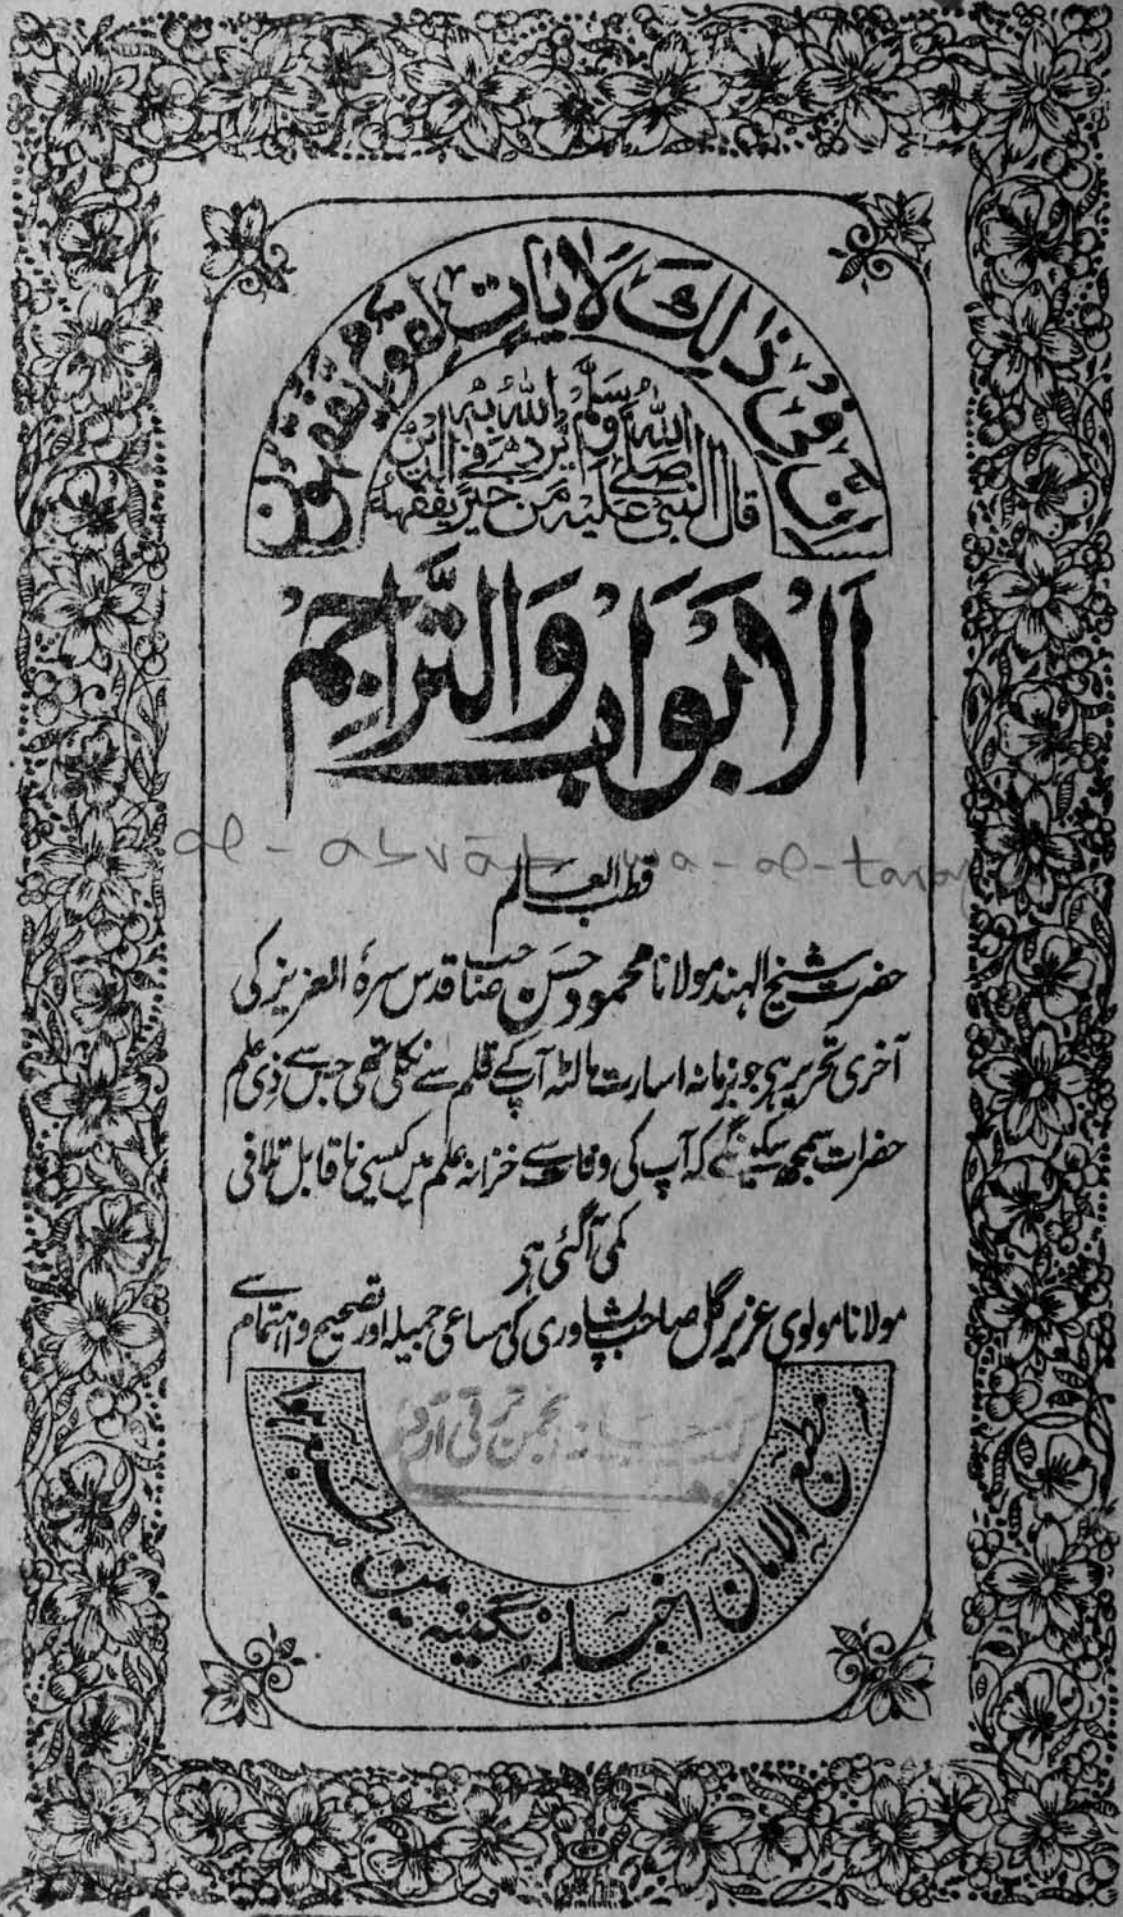 اِنَّ فِیْ ذٰلِكَ لَاٰیَاتٍ لِّقَوْمٍ یَّفْقَهُوْنَ
قَالَ النَّبِیُّ صَلَّے اللّٰہُ عَلَیْہِ وَسَلَّمَ مَن یُّرِدِ اللّٰہُ بِہٖ خَیْرًا یُّفَقِّهْهُ فِی الدِّیْنِ
اَلْاَبْوَابُ وَالتَّرَاجِمُ
al-abvāb wa-al-taraj
قطب العالم
حضرت شیخ الہند مولانا محمود حسن صاحب قدس سرہ العزیز کی
آخری تحریر ہی جو بزمانہ اسارت مالٹہ آپ کے قلم سے نکلی تھی جس سے ذی علم
حضرات سمجھ سکینگے کہ آپ کی وفات سے خزانہ علم میں کیسی ناقابل تلافی
کمی آگئی ہی
مولانا مولوی عزیز گل صاحب پشاوری کی مساعی جمیلہ اور تصحیح و اہتمام سے
انجمن ترقی اردو
مطبع الامان اخبار نگینہ میں طبع ہوکر